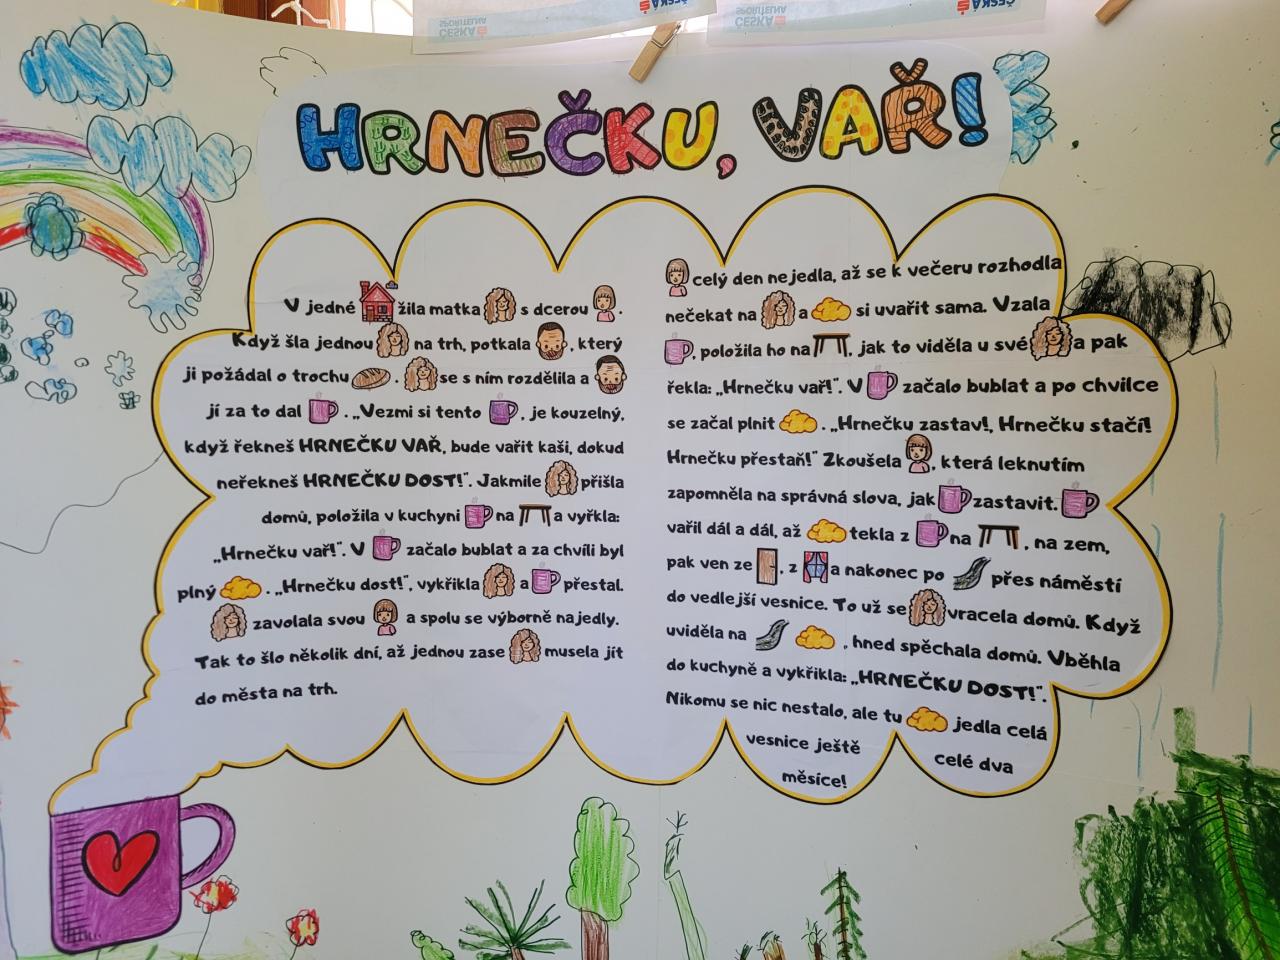 ČESKÁ
SPOŘITELNA
ČESKÁ
ČESKÁ
SPOŘITELNA
ČESKÁ
HRNEČKU, VAŘ!
V jedné žila matka s dcerou .
Když šla jednou na trh, potkala , který
ji požádal o trochu . se s ním rozdělila a
jí za to dal . „Vezmi si tento , je kouzelný,
když řekneš HRNEČKU VAŘ, bude vařit kaši, dokud
neřekneš HRNEČKU DOST!". Jakmile přišla
domů, položila v kuchyni na a vyřkla:
„Hrnečku vař!". V začalo bublat a za chvíli byl
plný . „Hrnečku dost!", vykřikla a přestal.
zavolala svou a spolu se výborně najedly.
Tak to šlo několik dní, až jednou zase musela jít
do města na trh.
celý den nejedla, až se k večeru rozhodla
nečekat na a si uvařit sama. Vzala
, položila ho na , jak to viděla u své a pak
řekla: „Hrnečku vař!". V začalo bublat a po chvilce
se začal plnit . „Hrnečku zastav!, Hrnečku stačí!
Hrnečku přestaň!" Zkoušela , která leknutím
zapomněla na správná slova, jak zastavit.
vařil dál a dál, až tekla z na , na zem,
pak ven ze , z a nakonec po přes náměstí
do vedlejší vesnice. To už se vracela domů. Když
uviděla na , hned spěchala domů. Vběhla
do kuchyně a vykřikla: „HRNEČKU DOST!".
Nikomu se nic nestalo, ale tu jedla celá
vesnice ještě celé dva
měsíce!